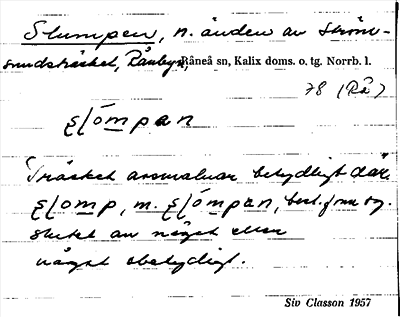 Slumpen, n. änden av Ström-
sundsträsket, Rånbyn, Råneå sn, Kalix doms. o. tg. Norrb. l.
78 (Rå)
slómpan
Träsket avsmalnar betydligt där.
slomp, m. slómpan, best. form sg.
slutet av något eller
något obetydligt.
Siv Classon 1957